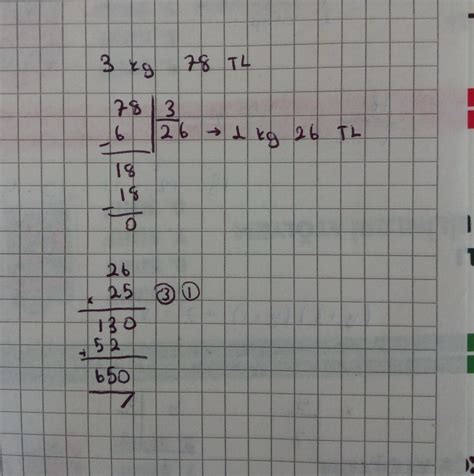 3 kg 78 TL
78 3
- 6 26 → 1 kg 26 TL
18
- 18
0
26
x 25 ③ ①
130
+ 52
650